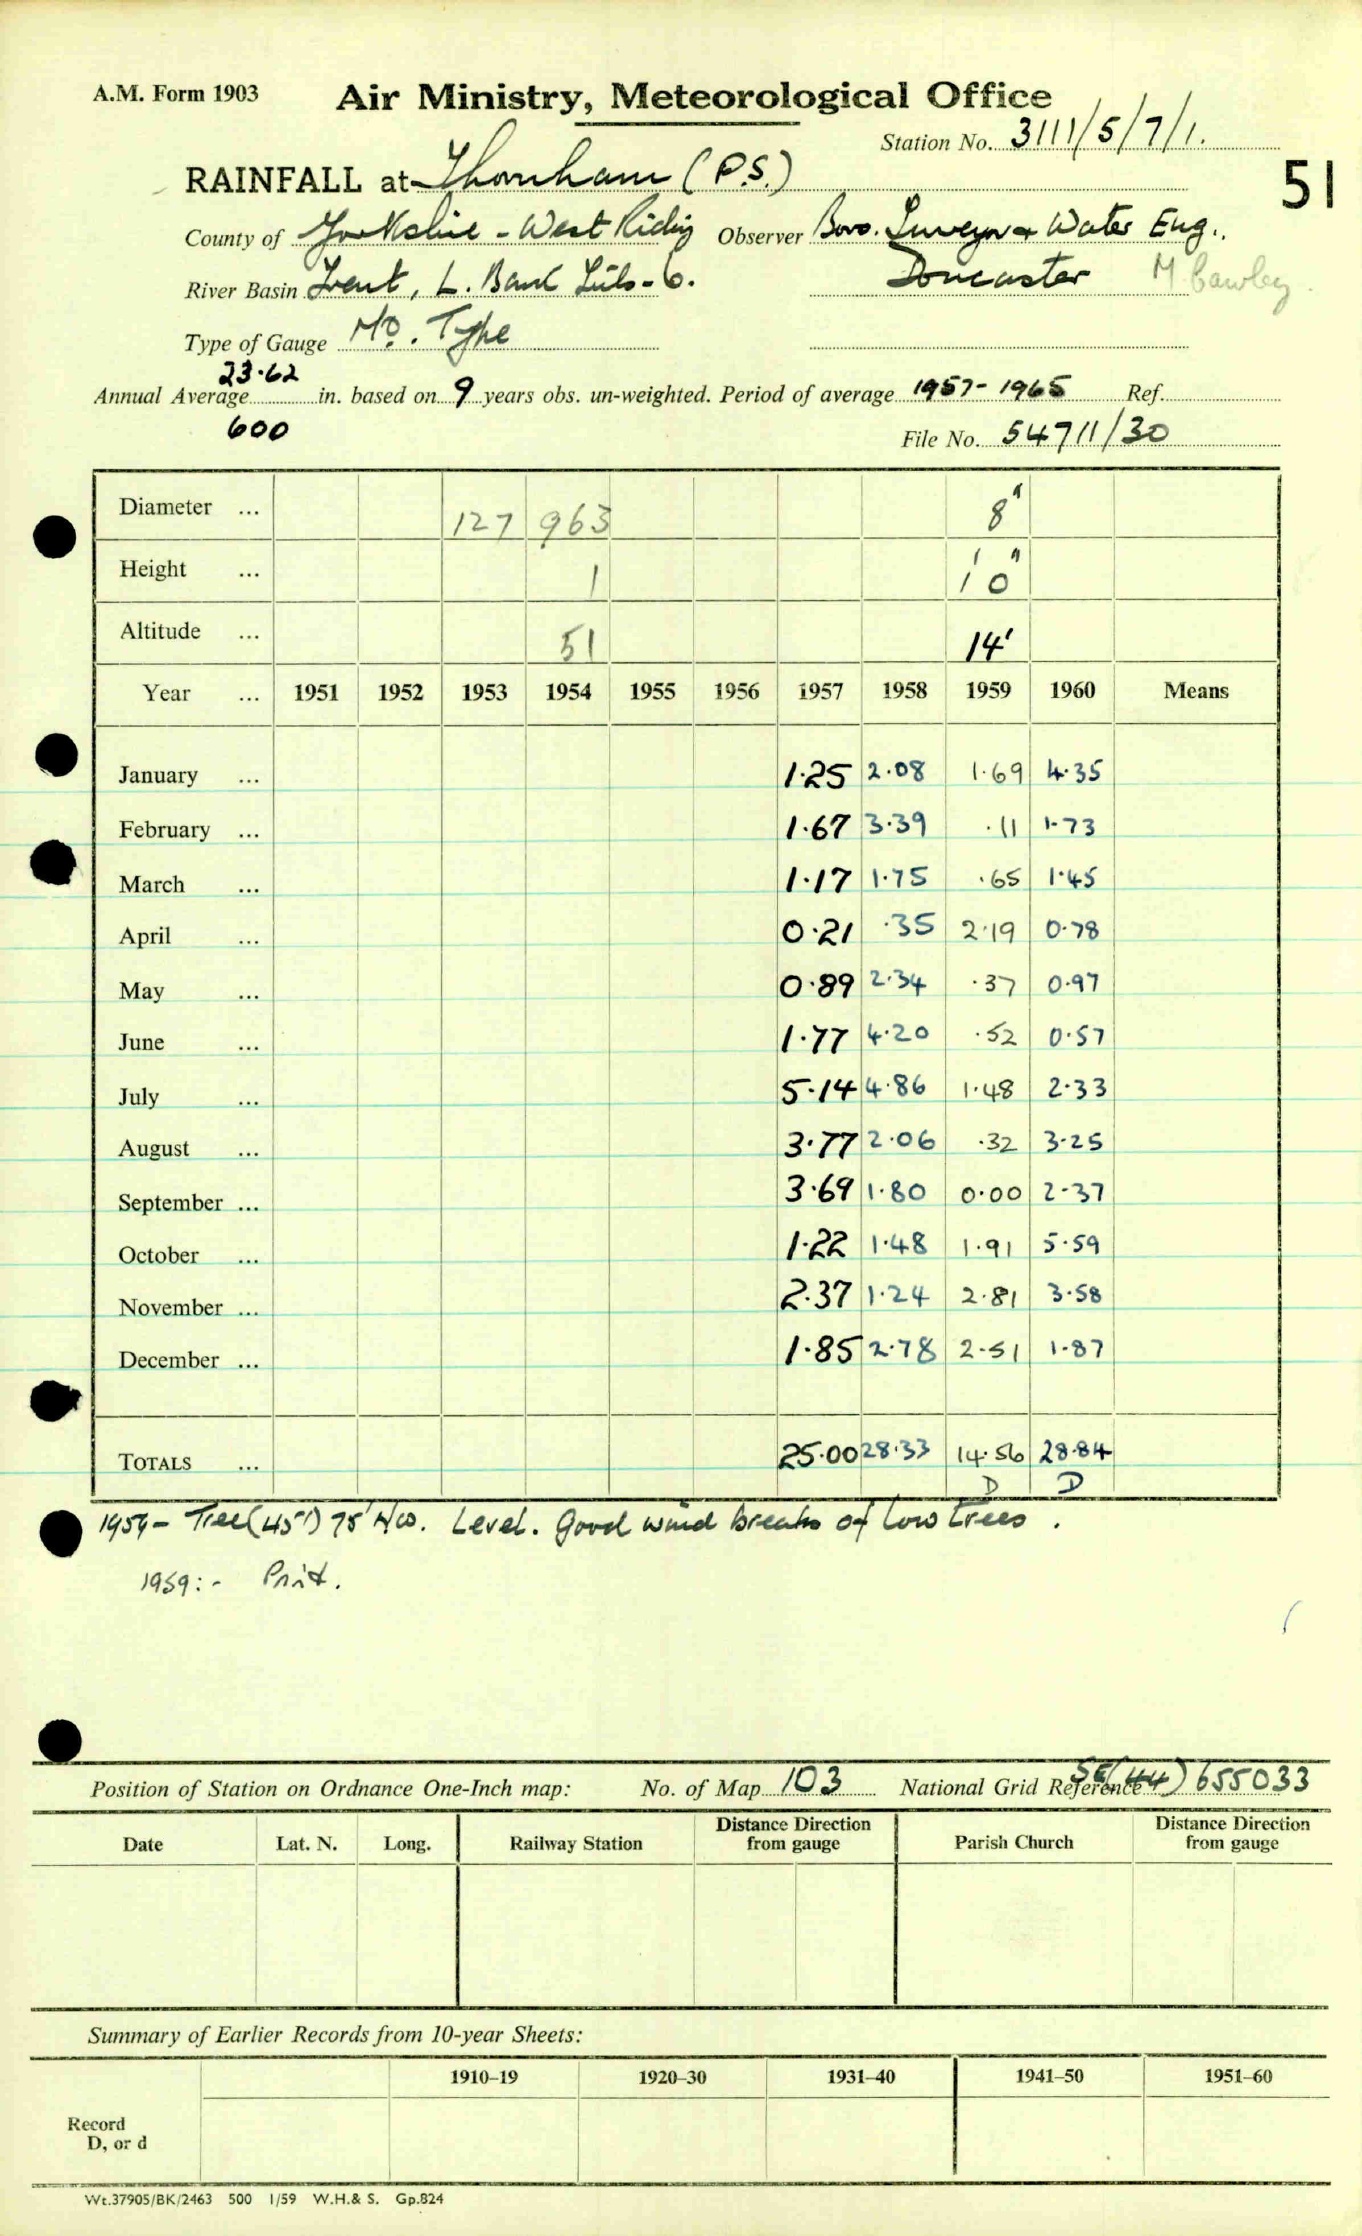 A.M. Form 1903 Air Ministry, Meteorological Office
Station No. 3111/5/7/1.
RAINFALL at Thornham (P.S.)
51
County of Yorkshire - West Riding Observer Boro. Surveyor & Water Eng.
River Basin Trent, L. Bank Tribs - 6. Doncaster M. Cawley
Type of Gauge MO. Type
23.62
Annual Average in. based on 9 years obs. un-weighted. Period of average 1957-1965 Ref.
600
File No. 54711/30
Diameter ... 127 963 8"
Height ... 1 1' 0"
Altitude ... 51 14'
Year ... 1951 1952 1953 1954 1955 1956 1957 1958 1959 1960 Means
January ... 1.25 2.08 1.69 4.35
February ... 1.67 3.39 .11 1.73
March ... 1.17 1.75 .65 1.45
April ... 0.21 .35 2.19 0.78
May ... 0.89 2.34 .37 0.97
June ... 1.77 4.20 .52 0.57
July ... 5.14 4.86 1.48 2.33
August ... 3.77 2.06 .32 3.25
September ... 3.69 1.80 0.00 2.37
October ... 1.22 1.48 1.91 5.59
November ... 2.37 1.24 2.81 3.58
December ... 1.85 2.78 2.51 1.87
TOTALS ... 25.00 28.33 14.56 28.84
D D
1959 - Tree (45') 75' NW. Level. Good wind breaks of low trees.
1959:- Print.
Position of Station on Ordnance One-Inch map: No. of Map 103 National Grid Reference SE(44) 655033
Date Lat. N. Long. Railway Station Distance Direction from gauge Parish Church Distance Direction from gauge
Summary of Earlier Records from 10-year Sheets:
1910–19 1920–30 1931–40 1941–50 1951–60
Record
D, or d
Wt.37905/BK/2463 500 1/59 W.H.& S. Gp.824